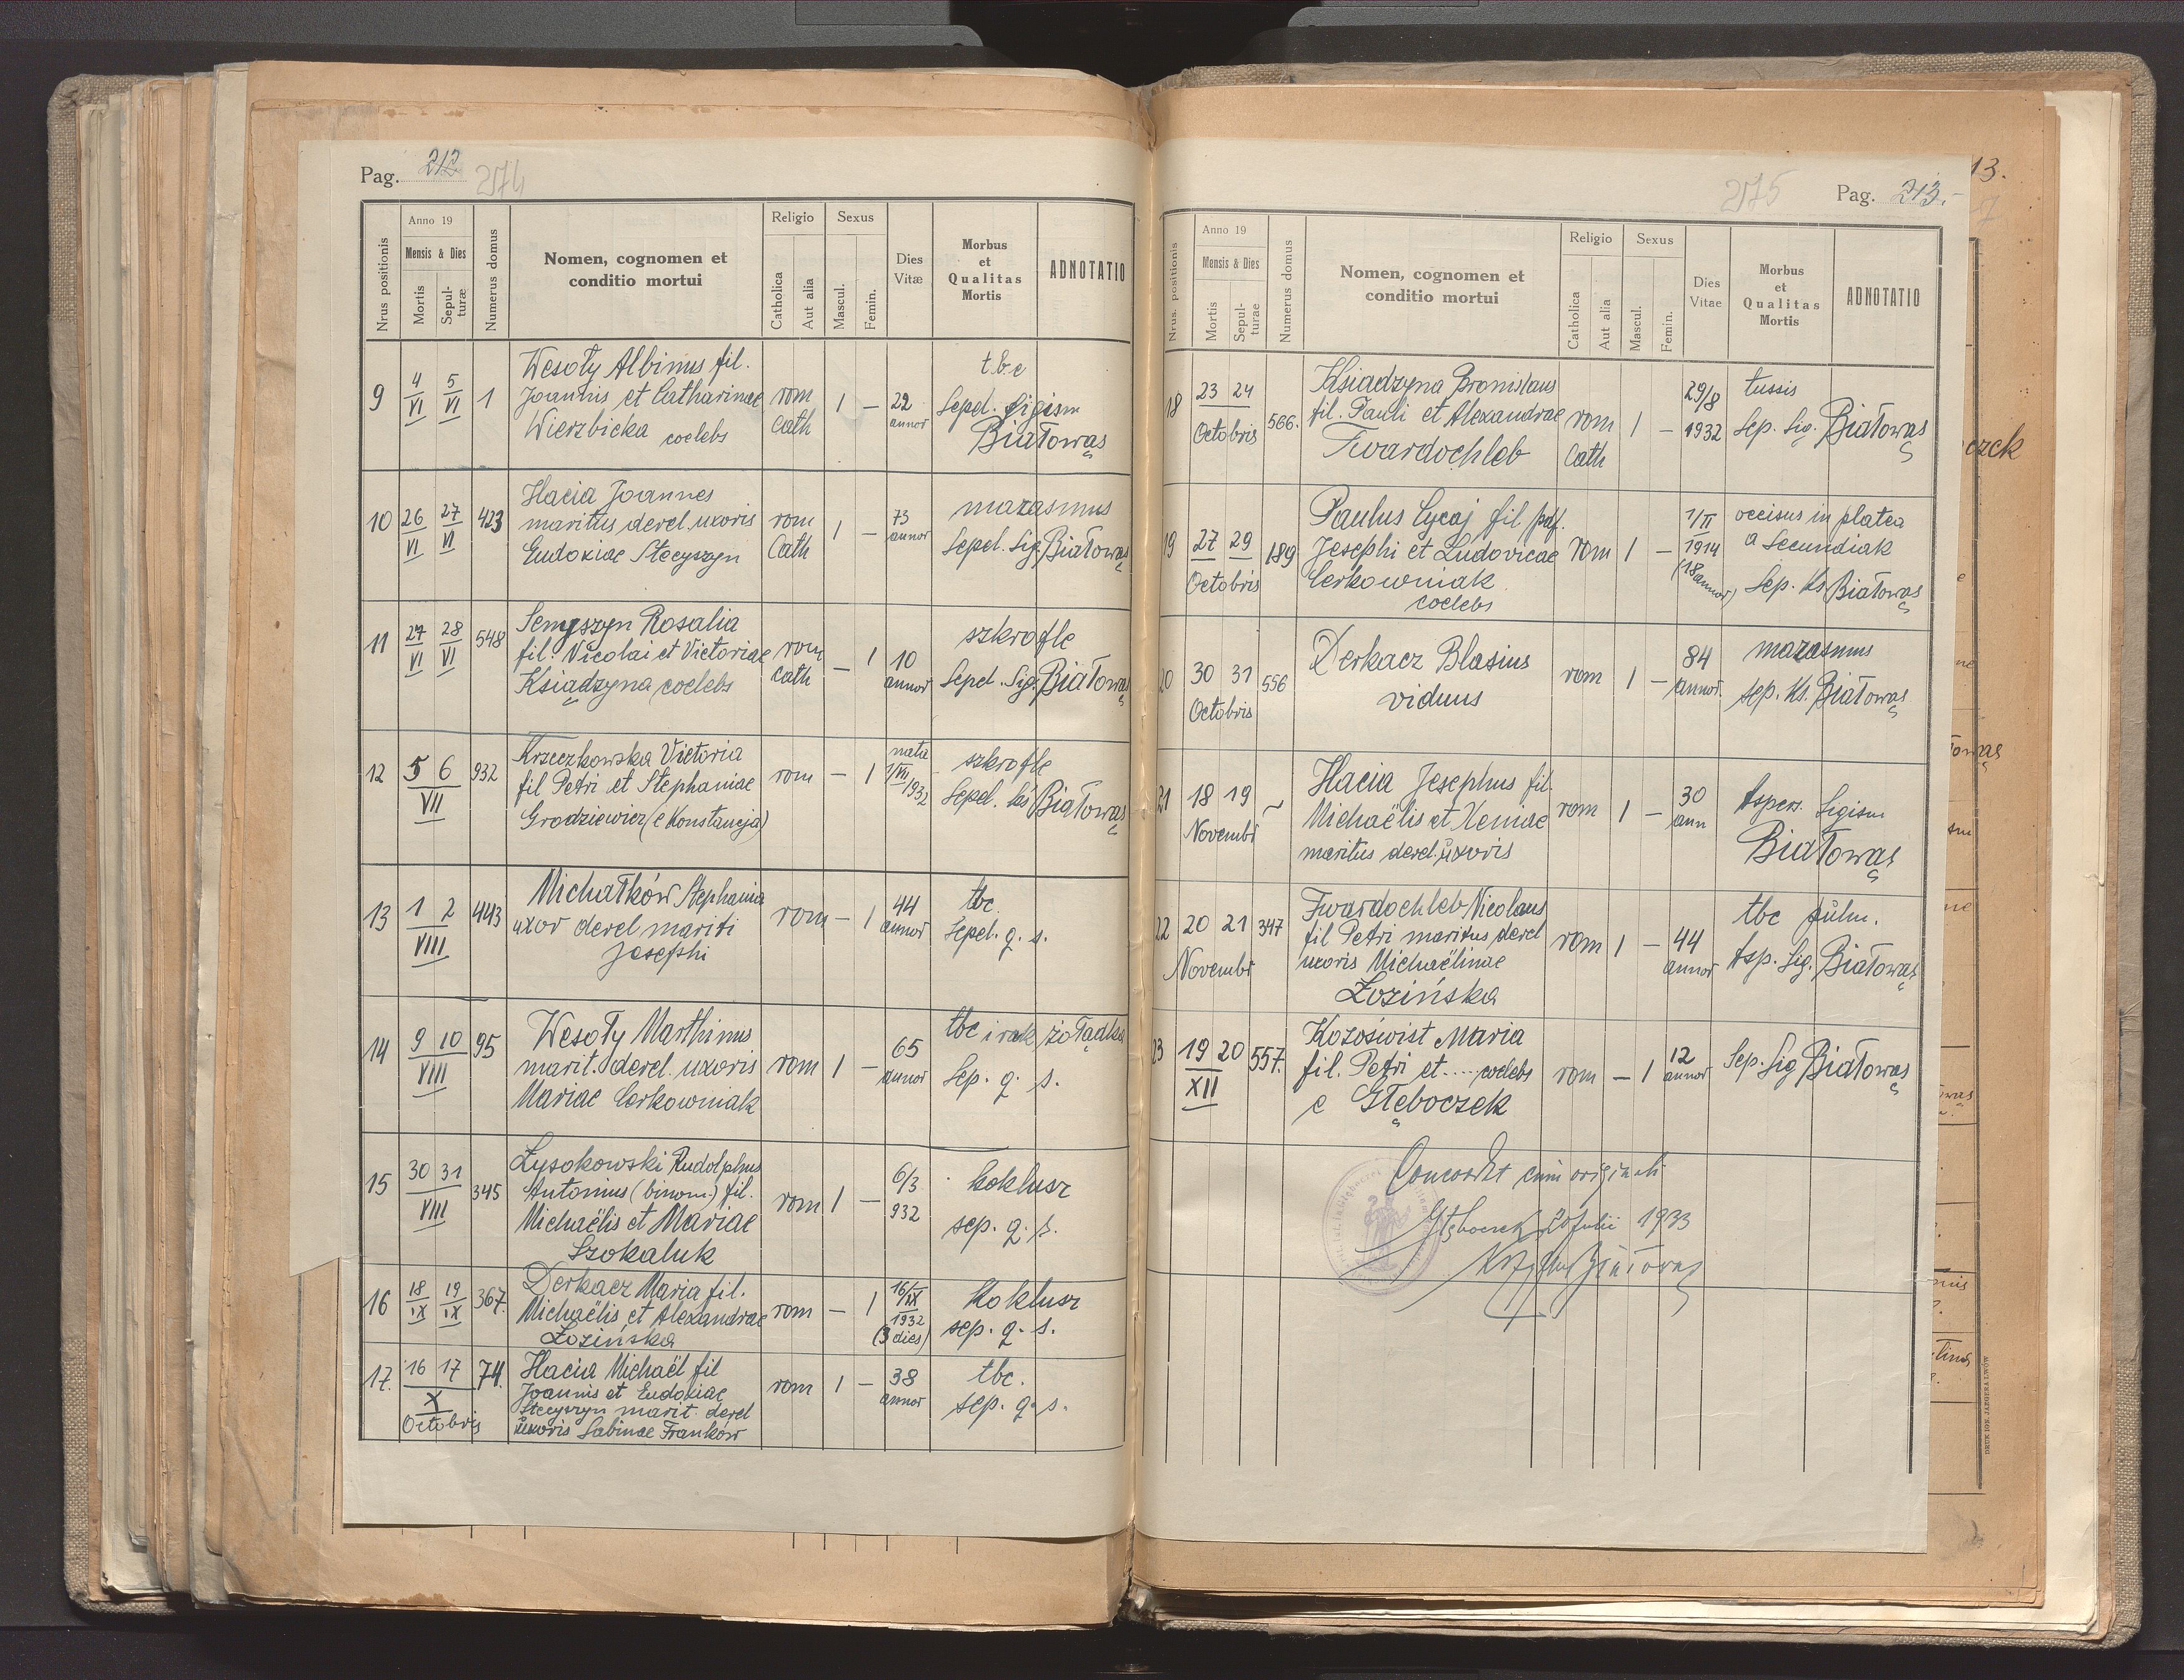 Pag. 212
274
Nrus positionis
Anno 19
Mensis & Dies
Mortis
Sepul-
turæ
Numerus domus
Nomen, cognomen et
conditio mortui
Religio
Catholica
Aut alia
Sexus
Mascul.
Femin.
Dies
Vitæ
Morbus
et
Qualitas
Mortis
ADNOTATIO
9 4/VI 5/VI 1
Wesoły Albinus fil.
Joannis et Catharinae
Wierzbicka coelebs
rom
Cath
1 —
22
annor
t.b.c
Sepel. Sigism
Białowąs
10 26/VI 27/VI 423
Hacia Joannes
maritus derel. uxoris
Eudoxiae Stecyszyn
rom
Cath
1 —
73
annor
marasmus
Sepel. Sig. Białowąs
11 27/VI 28/VI 548
Semyszyn Rosalia
fil. Nicolai et Victoriae
Książyna coelebs
rom
Cath
— 1
10
annor
szkrofle
Sepel. Sig. Białowąs
12 5 6 VII 932
Krzeczkowska Victoria
fil Petri et Stephaniae
Grodziewicz (e Konstancja)
rom
— 1
nata
1/VII 1932
szkrofle
Sepel. Ks Białowąs
13 1 2 VIII 443
Michałków Stephania
uxor derel mariti
Josephi
rom
— 1
44
annor
tbc.
Sepel. q. s.
14 9 10 VIII 95
Wesoły Marthinus
marit. derel. uxoris
Mariae Cerkowniak
rom
1 —
65
annor
tbc i rak żołądka
Sep. q. s.
15 30 31 VIII 345
Łysokowski Rudolphus
Antonius (binom.) fil.
Michaëlis et Mariae
Szokaluk
rom
1 —
6/3
932
koklusz
sep. q. s.
16 18/IX 19/IX 367.
Derkacz Maria fil.
Michaëlis et Alexandrae
Łozińska
rom
— 1
16/IX
1932
(3 dies)
Koklusz
sep. q. s.
17. 16 17 X
Octobris
74.
Hacia Michaël fil
Joannis et Eudoxiae
Stecyszyn marit. derel
uxoris Sabinae Franków
rom
1 —
38
annor
tbc.
sep. q. s.
275
Pag. 213.-
Nrus. positionis
Anno 19
Mensis & Dies
Mortis
Sepul-
turae
Numerus domus
Nomen, cognomen et
conditio mortui
Religio
Catholica
Aut alia
Sexus
Mascul.
Femin.
Dies
Vitae
Morbus
et
Qualitas
Mortis
ADNOTATIO
18 23 24
Octobris
566.
Ksiadzyna Bronislaus
fil. Pauli et Alexandrae
Twardochleb
rom
Cath
1 —
29/8
1932
tussis
Sep. Sig. Białowąs
19 27 29
Octobris
189
Paulus Lycaj fil.
Josephi et Ludovicae
Cerkowniak
coelebs
rom
1 —
1/II
1914
(18 annor)
occisus in platea
a Secundiak
Sep. Ks Białowąs
20 30 31
Octobris
556
Derkacz Blasius
viduus
rom
1 —
84
annor.
marasmus
sep. Ks. Białowąs
21 18 19
Novembr
~
Hacia Josephus fil.
Michaëlis et Xeniae
maritus derel. uxoris
rom
1 —
30
ann
Aspers. Sigism
Białowąs
22 20 21
Novembr
347
Twardochleb Nicolaus
fil Petri maritus derel
uxoris Michaëlinae
Łozińska
rom
1 —
44
annor
tbc pulm.
Asp. Sig. Białowąs
23 19 20 XII 557.
Kozoświst Maria
fil. Petri et .... coelebs
e Głęboczek
rom
— 1
12
annor
Sep. Sig Białowąs
Concordat cum originali
Głęboczek 20 Julii 1933
DRUK IGN. JAEGERA LWÓW
13.
czek